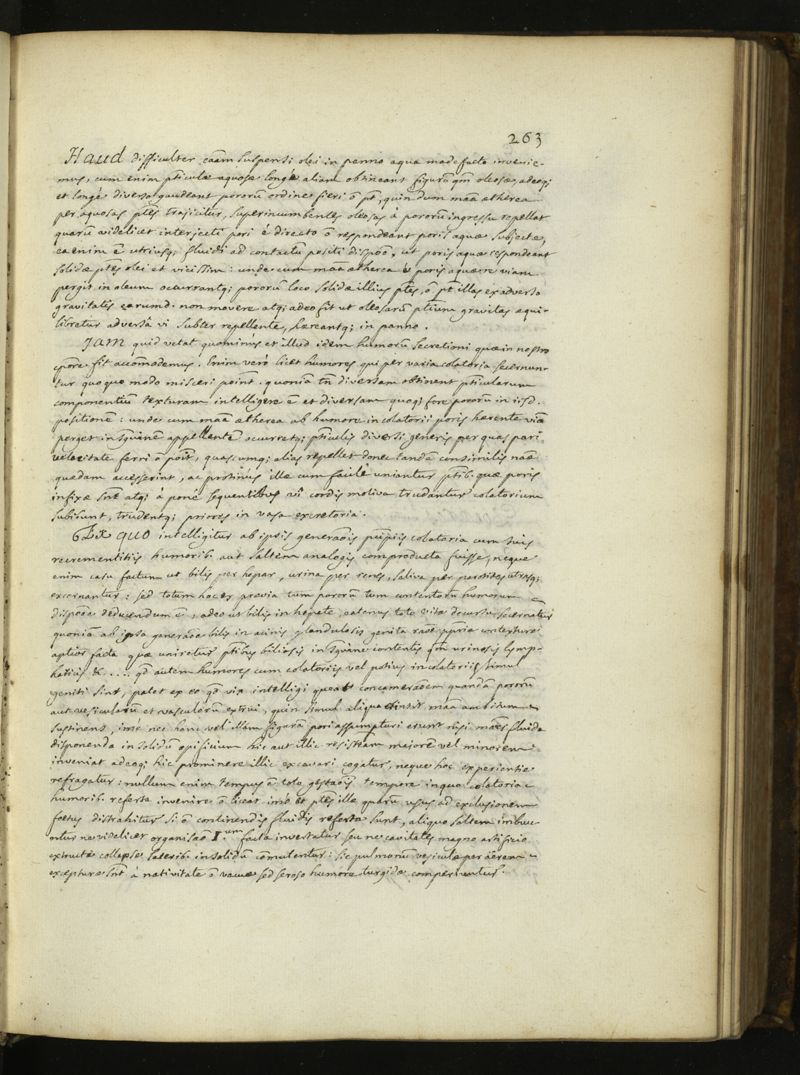 263
Haud difficulter cãam suspensi olei in panno aqua madefacto invenie-
mus, cum enim pticulæ aquosæ longe aliam obtineant figurã qm oleosæ, adeoq;
et longè diverso gaudeant pororũ ordine fieri õ pt, quin dum maã ætherea
per aquosas ptes trajicitur, superincumbentes oleosas à pororũ ingressu repellat
quarũ videlicet interjecti pori è directo õ respondeant poris aquæ subjectæ,
ea enim ẽ utriusq; fluidi ad contactũ positi dispõo, ut poris aquæ respondeant
solidæ ptes olei et vicissim: unde cum maã ætherea è poris aquæ viam
pergit in oleum occurrantq; pororũ loco solidæ illius ptes, õ pt illas ex adverso
gravitatis earumd. non movere atq; adeo fit ut oleosarũ ptium gravitas æqui-
libretur adversâ vi subter repellente, hæreantq; in panno.
JAM quid vetat quominus et illud idem humorũ secretioni quæ in nostro
cpõre fit accõmodemus. Enim vero licet humores qui per varia colatoria secernun-
tur quoquo modo misceri point. quoniã tñ diversam obtinent pticularum
componentium texturam intelligere ẽ et diversam quoq; fore pororũ in iisd.
positionẽ: unde cum maã ætherea ab humore in colatorii poris hærente viã
perget in sguinẽ appellentẽ occurretq; pticulis diversi generis per quas pari
velocitate ferri õ poit, quascumq; alias repellet donec tandẽ consimilis naæ
quædam accesserint, ac protinus illæ cum facilè uniantur ptib. quæ poris
infixæ snt atq; à ponè sequentibus vi cordis motiva trudantur colatorium
subeunt, trudentq; priores in vasa excretoria.
6 EX QUO intelligitur ab ipsis generaõis pñpiis colatoria cum suis
recrementitiis humorib. aut saltem analogis comproducta fuisse, neque
enim casu factum ut bilis per hepar, urina per renes, saliva per parotides utrosq;
excernantur: sed totum hoc ex prævia tum pororũ tum contentorũ humorum
dispõoe deducendum ẽ, adeo ut bilis in hepate, eatenus toto vitæ decursu secernatur
quoniã ab ipsa generãoe bilis in acinis glandulosis genita raõe ppriæ contexturæ
aptior facta quæ uniretur ptibus biliosis in sguine contentis qm urinosis lymp-
haticis &c ....: qd autem humores cum colatoriis vel potius in colatoriis simul
geniti sint, patet ex eo qd vix intelligi queat concamerãoem quandã pororũ
aut vesicularũ et vasculorũ extrui, quin simul aliqua extiterit maã ambitum
sustinens, imò nec hanc vel illam figurã pori assumpturi erunt nisi maæs fluida
disponenda in solidũ opificium hic aut illic resistiam majorẽ vel minorem
inveniat adeoq; hic prominere illic excavari cogatur, neque hoc experientiæ
refragatur: nullum enim tempus ẽ toto gestaõis tempore in quo colatoria
humorib. referta invenire õ liceat imò et ptes illæ quarũ usus ad exclusionem
foetus distrahitur si õ continendis fluidis referta sunt, aliquo saltem imbuun-
tur ne videlicet organisaõ I.um facta invertatur seu ne cavitates magno artificio
extructæ collapsis laterib. in solidũ comutentur: sic pulmonũ vesiculæ per aerem
excepturæ snt à nativitate õ vacuæ sed seroso humore turgidæ comperiuntur.